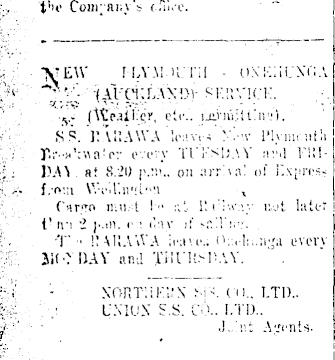 the Company's office.
NEW PLYMOUTH - ONEHUNGA
(AUCKLAND) SERVICE.
(Weather, etc., permitting).
S.S. RARAWA leaves New Plymouth
Breakwater every TUESDAY and FRI-
DAY, at 8.20 p.m., on arrival of Express
from Wellington
Cargo must be at Railway not later
than 2 p.m. on day of sailing.
The RARAWA leaves Onehunga every
MONDAY and THURSDAY.
NORTHERN S.S. CO., LTD.,
UNION S.S. CO., LTD.,
Joint Agents.